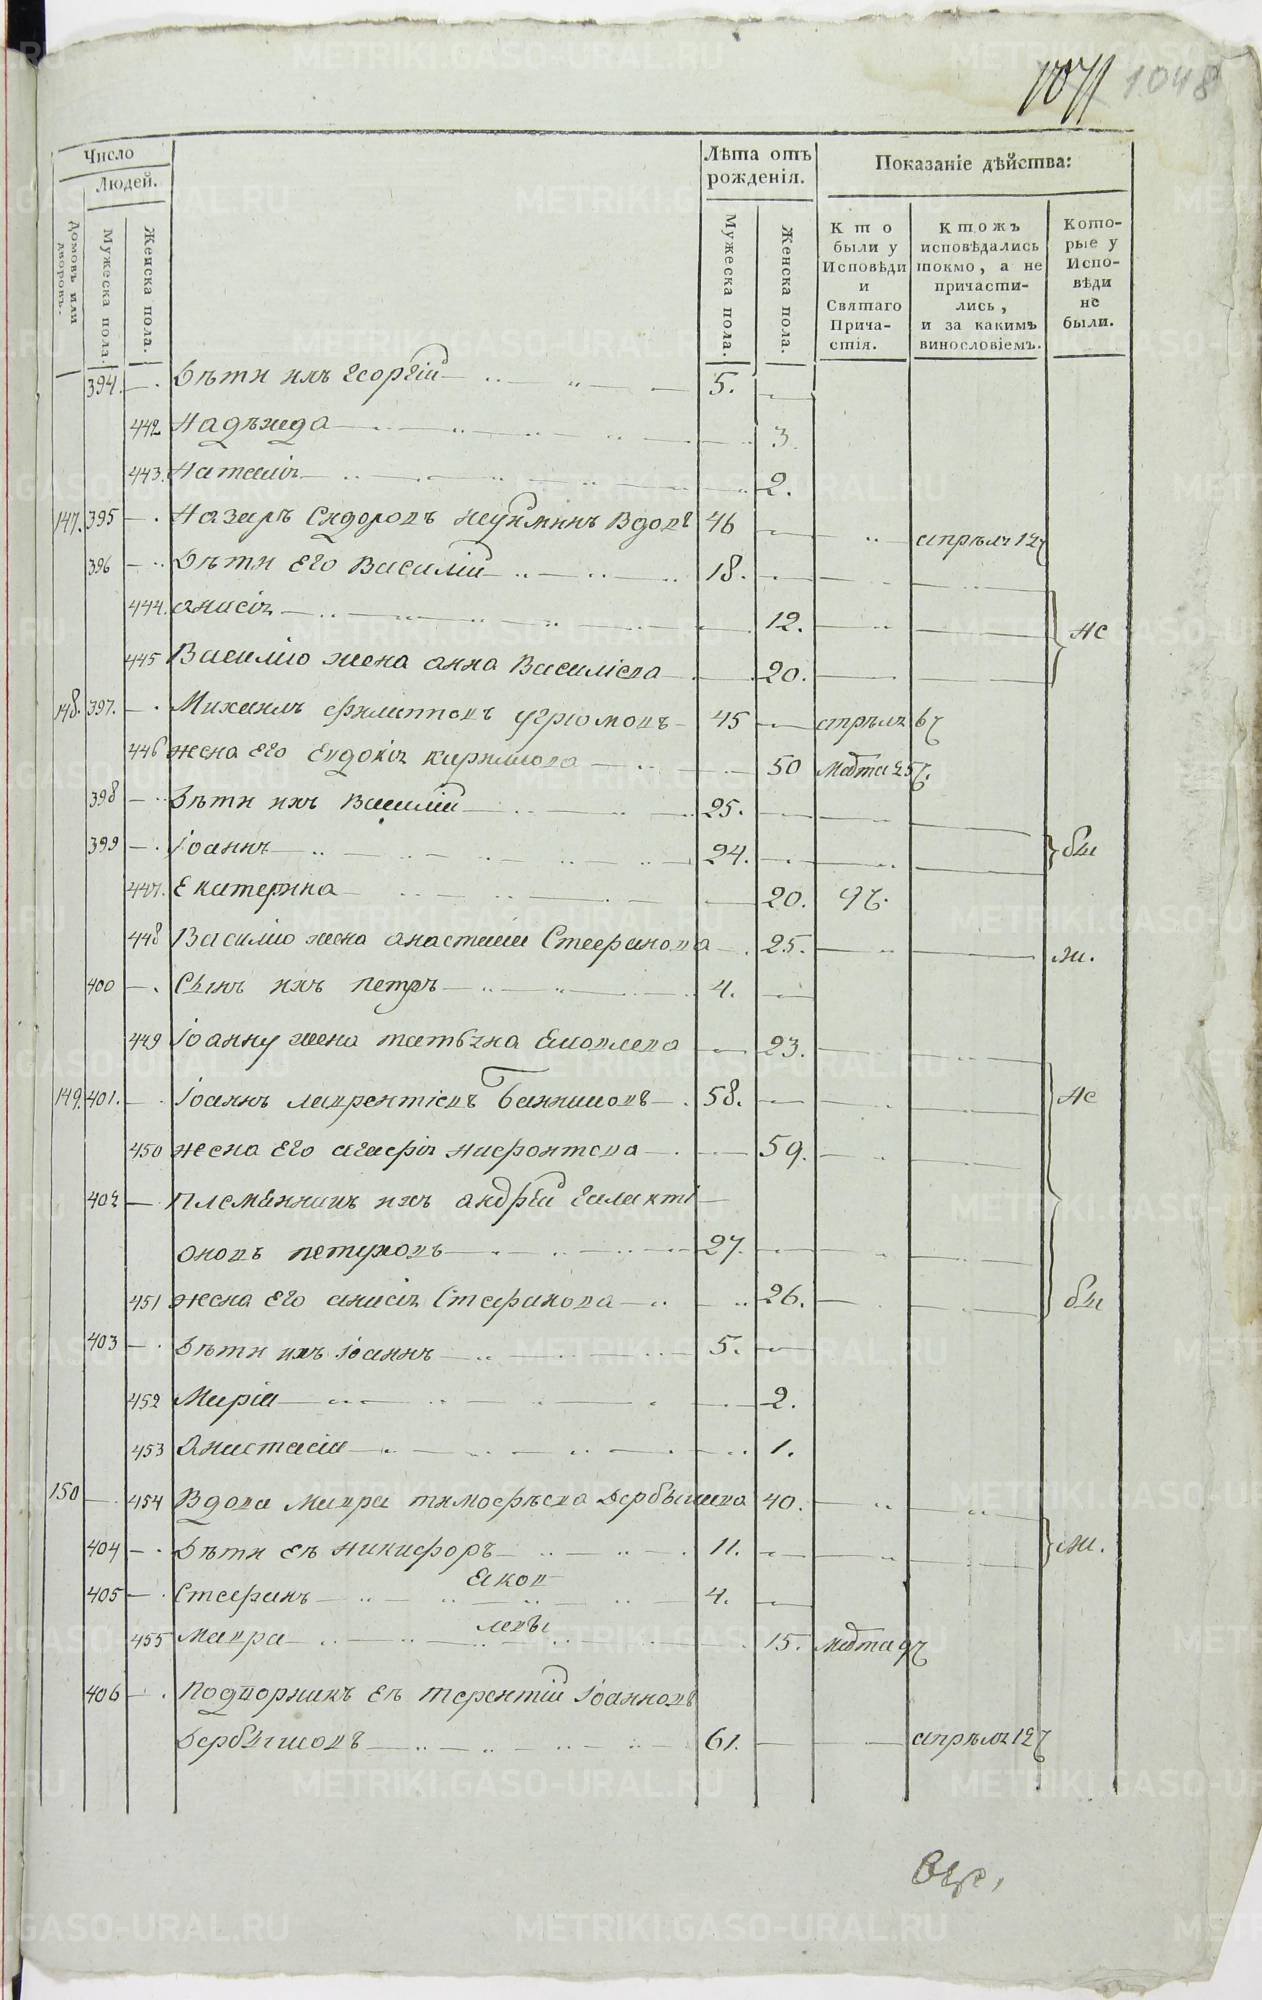 1071 1048
Число
Людей.
Домовъ или дворовъ.
Мужеска пола.
Женска пола.
Лѣта отъ рожденія.
Мужеска пола.
Женска пола.
Показаніе дѣйства:
Кто были у Исповѣди и Святаго Прича-стія.
Ктожъ исповѣдались токмо, а не причасти-лись, и за какимъ винословіемъ.
Кото-рые у Испо-вѣди не были.
394. Дѣти ихъ Георгій 5.
442 Надѣжда 3
443. Наталія 2.
147. 395 Назаръ Сидоровъ Неуйминъ Вдовъ 46 апрѣля 12
396 Дѣти его Василій 18.
444. анисія 12. не
445 Василію жена анна Василіева 20.
148. 397. Михаилъ филиповъ угрюмовъ 45 апрѣля 6
446 жена его Евдокія кирилова 50 марта 25.
398 Дѣти ихъ Василій 25.
399 Іоаннъ 24. бы
447. Екатерина 20. 9
448 Василію жена анастасія Стефанова 25. ли.
400 Сынъ ихъ петръ 4.
449 Іоанну жена татьяна Яковлева 23.
149. 401. Іоаннъ лаврентіевъ Банниковъ 58. не
450 жена его агафія нифонтова 59.
402 племянникъ ихъ андрей Галакті
оновъ петуховъ 27.
451 жена его анисія Стефанова 26. бы
403 Дѣти ихъ Іоаннъ 5.
452 Марія 2.
453 Анастасія 1.
150 454 Вдова мавра тимофѣева Дербышева 40.
404 Дѣти ея никифоръ 11. ли.
Яков
405 Стефанъ 4.
левы
455 мавра 15. марта 9
406 Подворникъ ея терентій Іоанновъ
Дербышовъ 61. апрѣля 12